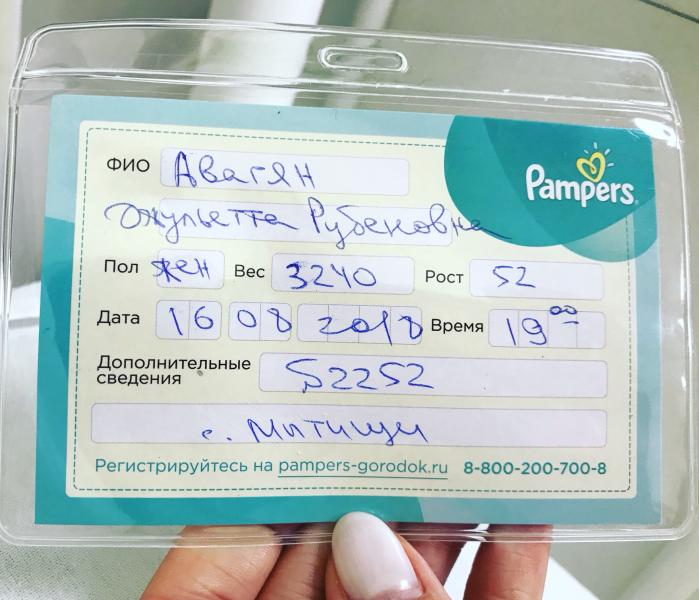 Pampers
ФИО Авагян
Джульетта Рубеновна
Пол жен Вес 3240 Рост 52
Дата 16 08 2018 Время 19 00
Дополнительные сведения 52252
г. Мытищи
Регистрируйтесь на pampers-gorodok.ru 8-800-200-700-8